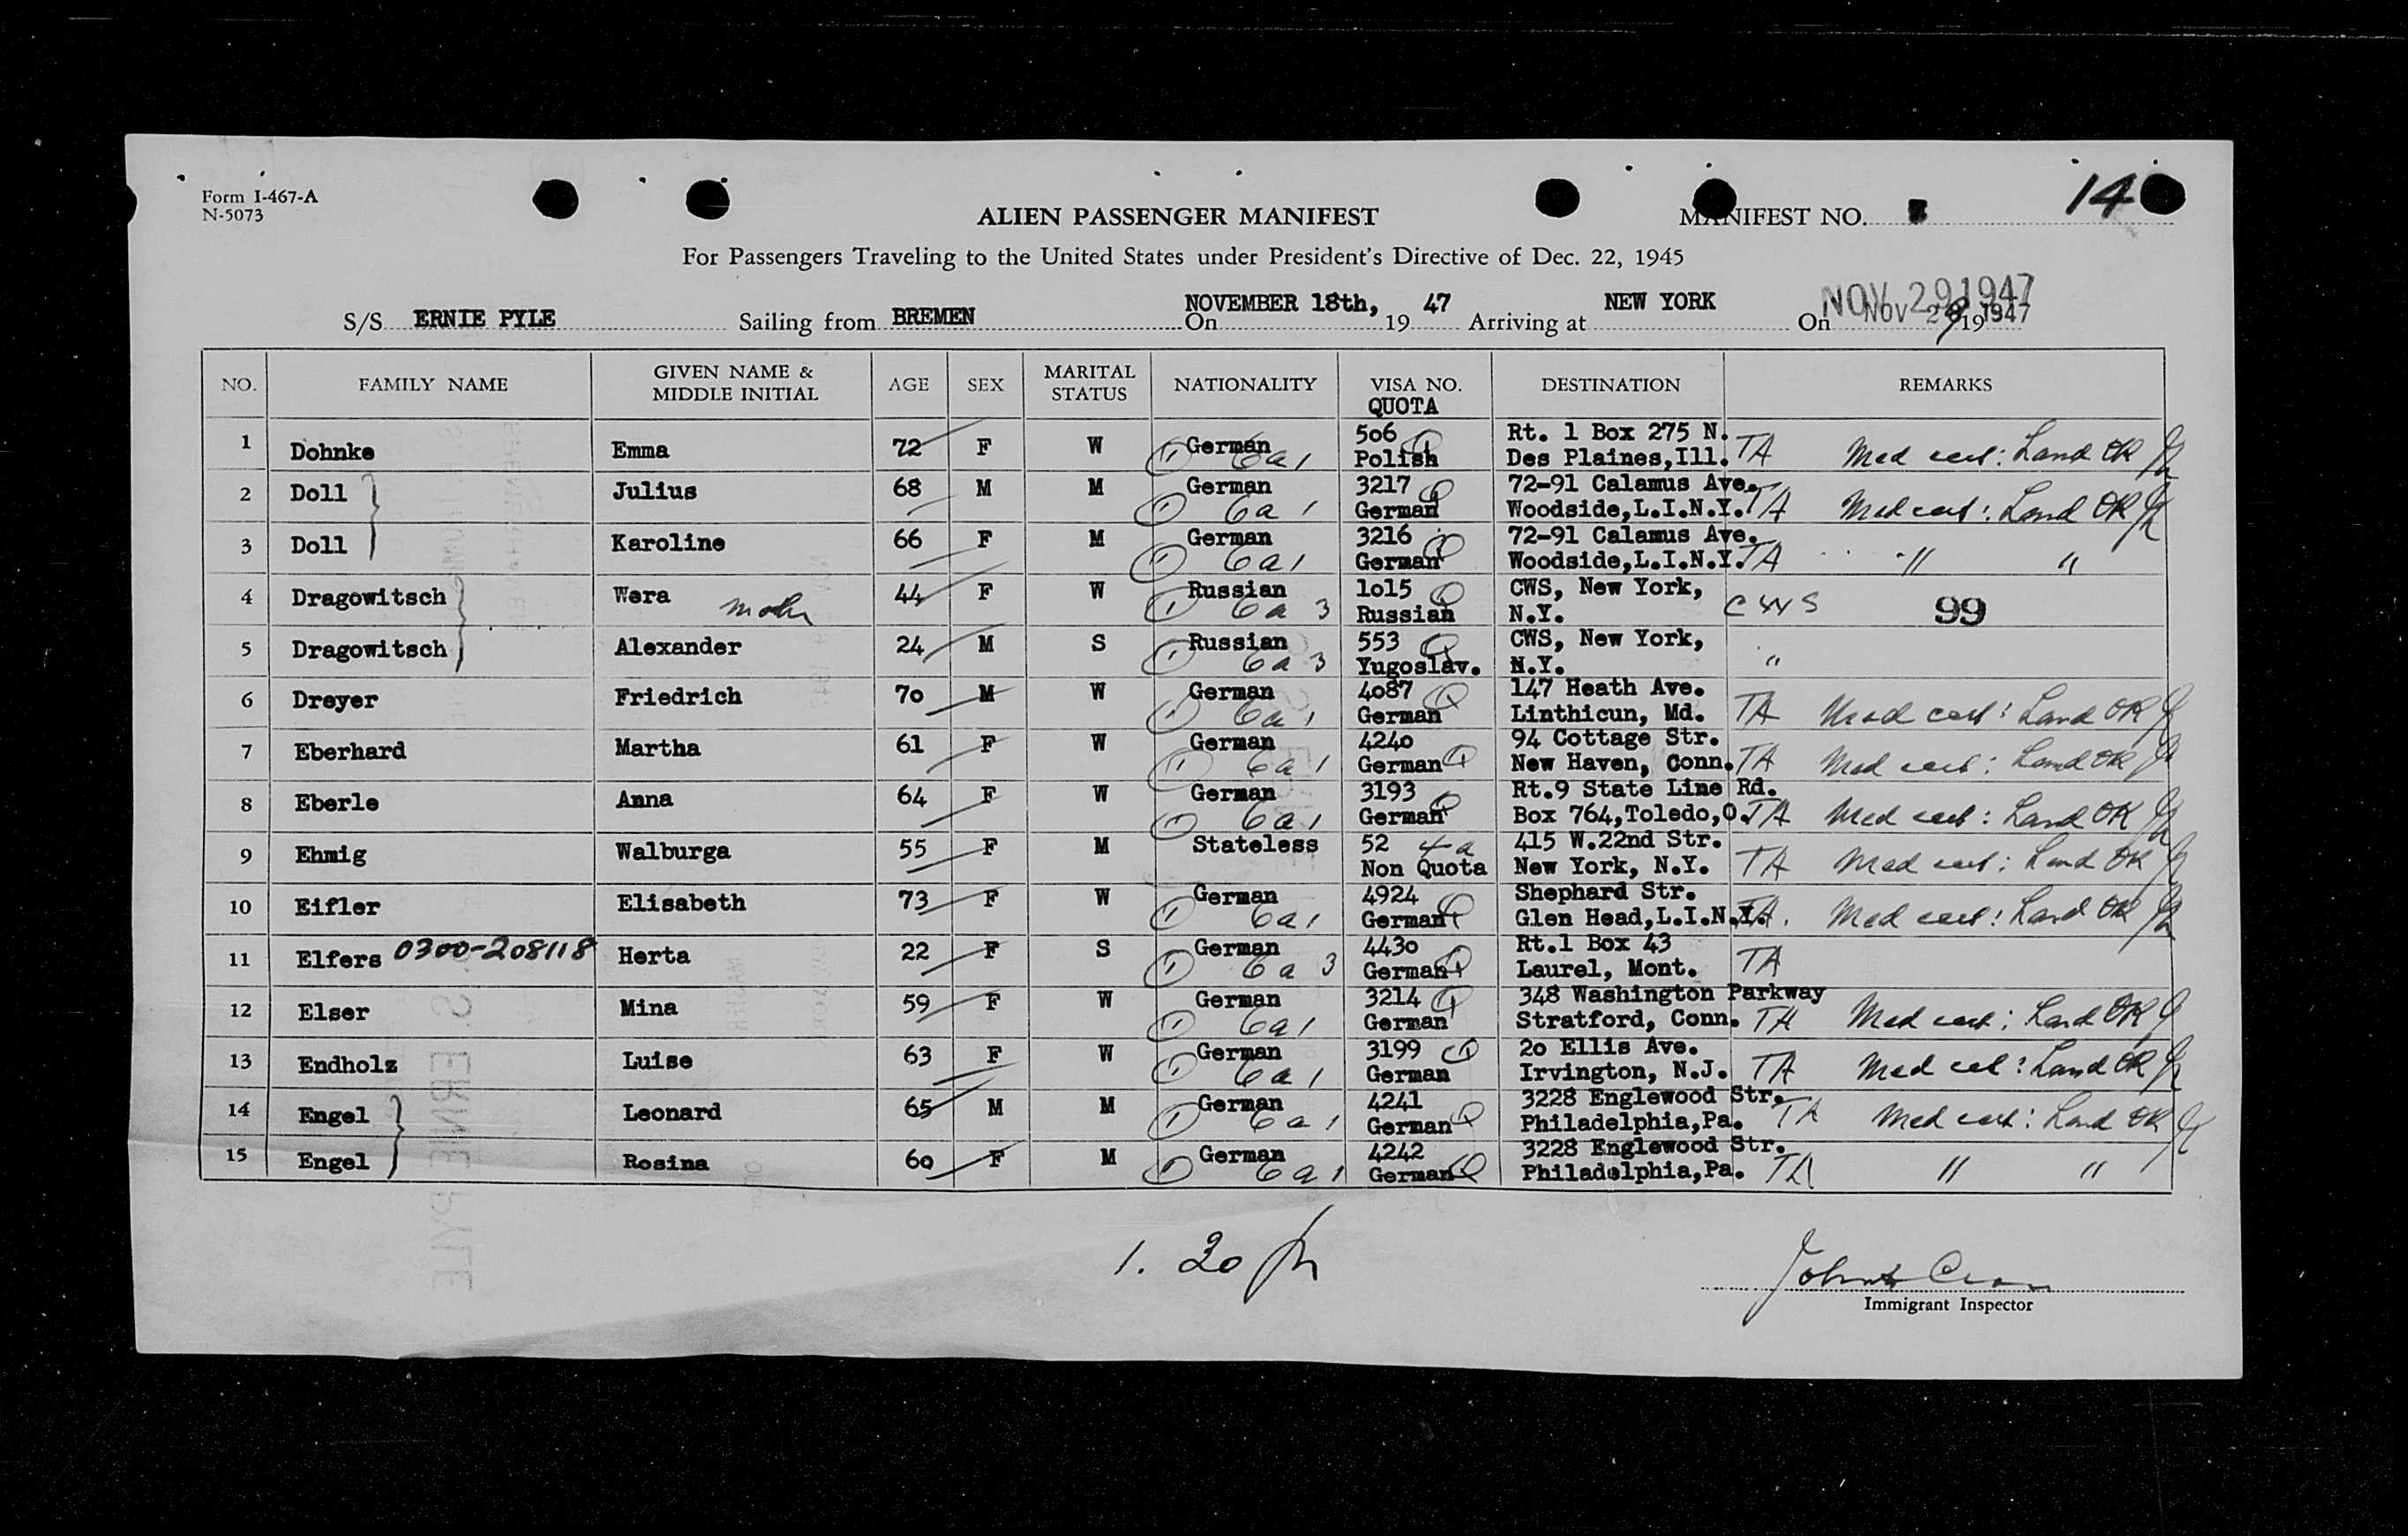 Form I-467-A
N-5073
ALIEN PASSENGER MANIFEST
MANIFEST NO. 14
For Passengers Traveling to the United States under President's Directive of Dec. 22, 1945
S/S ERNIE PYLE Sailing from BREMEN On NOVEMBER 18th, 19 47 Arriving at NEW YORK On NOV 29 1947
NO. FAMILY NAME GIVEN NAME & MIDDLE INITIAL AGE SEX MARITAL STATUS NATIONALITY VISA NO. QUOTA DESTINATION REMARKS
1 Dohnke Emma 72 F W German 6a1 506 Q Rt. 1 Box 275 N. TA Med cert: Land OK
Polish Des Plaines,Ill.
2 Doll Julius 68 M M German 6a1 3217 Q 72-91 Calamus Ave. TA Med cert: Land OK
German Woodside,L.I.N.Y.
3 Doll Karoline 66 F M German 6a1 3216 Q 72-91 Calamus Ave. TA " "
German Woodside,L.I.N.Y.
4 Dragowitsch Wera 44 F W Russian 6a3 1o15 Q CWS, New York, CWS 99
Russian N.Y.
5 Dragowitsch Alexander 24 M S Russian 6a3 553 Q CWS, New York, "
Yugoslav. N.Y.
6 Dreyer Friedrich 7o M W German 6a1 4o87 Q 147 Heath Ave. TA Med cert: Land OK
German Linthicun, Md.
7 Eberhard Martha 61 F W German 6a1 424o Q 94 Cottage Str. TA Med cert: Land OK
German New Haven, Conn.
8 Eberle Anna 64 F W German 6a1 3193 Q Rt.9 State Line Rd. TA Med cert: Land OK
German Box 764,Toledo,O.
9 Ehmig Walburga 55 F M Stateless 52 4a 415 W.22nd Str. TA Med cert: Land OK
Non Quota New York, N.Y.
10 Eifler Elisabeth 73 F W German 6a1 4924 Q Shephard Str. TA. Med cert: Land OK
German Glen Head,L.I.N.Y.
11 Elfers 0300-208118 Herta 22 F S German 6a3 443o Q Rt.1 Box 43 TA
German Laurel, Mont.
12 Elser Mina 59 F W German 6a1 3214 Q 348 Washington Parkway TA Med cert: Land OK
German Stratford, Conn.
13 Endholz Luise 63 F W German 6a1 3199 Q 2o Ellis Ave. TA Med cert: Land OK
German Irvington, N.J.
14 Engel Leonard 65 M M German 6a1 4241 Q 3228 Englewood Str. TA Med cert: Land OK
German Philadelphia,Pa.
15 Engel Rosina 6o F M German 6a1 4242 Q 3228 Englewood Str. TA " "
German Philadelphia,Pa.
1. 20
Immigrant Inspector